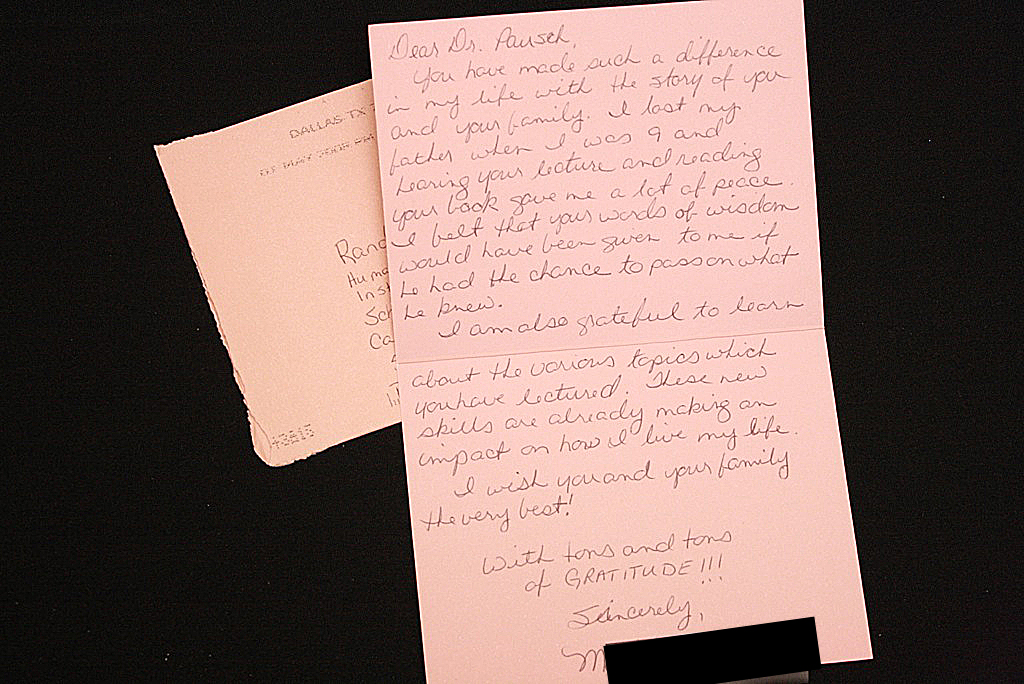 DALLAS TX
07 MAY 2008 PM
Rand
Huma
Inst
Sch
Ca
43815
Dear Dr. Pausch,
You have made such a difference
in my life with the story of you
and your family. I lost my
father when I was 9 and
hearing your lecture and reading
your book gave me a lot of peace.
I felt that your words of wisdom
would have been given to me if
he had the chance to pass on what
he knew.
I am also grateful to learn
about the various topics which
you have lectured. These new
skills are already making an
impact on how I live my life.
I wish you and your family
the very best!
With tons and tons
of GRATITUDE!!!
Sincerely,
M